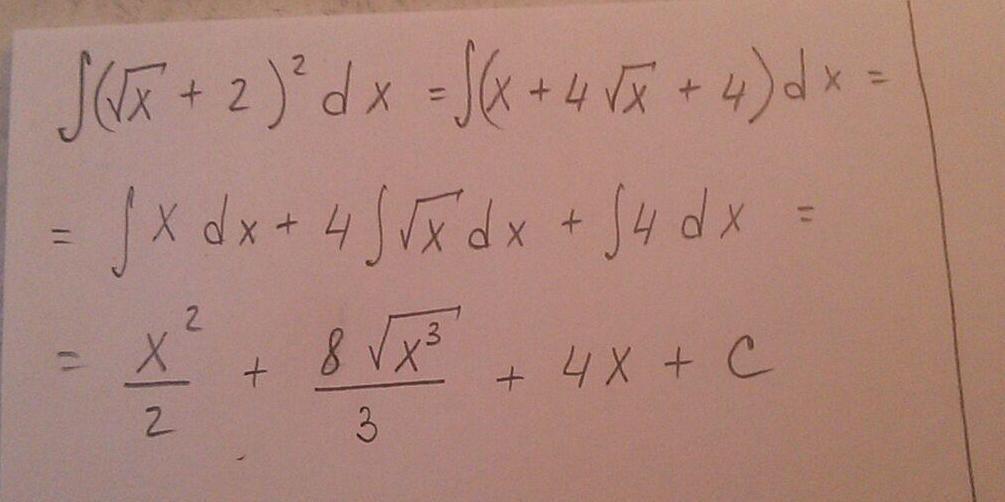 ∫(√x + 2)² dx = ∫(x + 4√x + 4)dx =
= ∫x dx + 4∫√x dx + ∫4 dx =
= x²/2 + 8√x³/3 + 4x + C